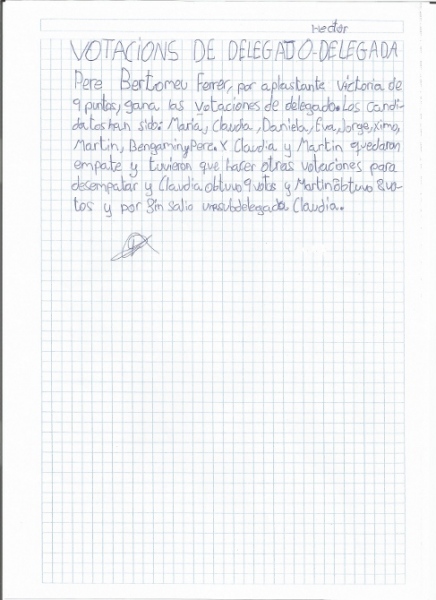 Hector
VOTACIONS DE DELEGADO-DELEGADA
Pere Bertomeu Ferrer, por aplastante victoria de
9 puntos, gana las votaciones de delegado. Los candi-
datos han sido: María, Claudia, Daniela, Eva, Jorge, Ximo,
Martin, Bengamin y Pere. Y Claudia y Martin quedaron
empate y tuvieron que hacer otras votaciones para
desempatar y Claudia obtuvo 9 votos y Martin obtuvo 8 vo-
tos y por fin salio subdelegada Claudia.